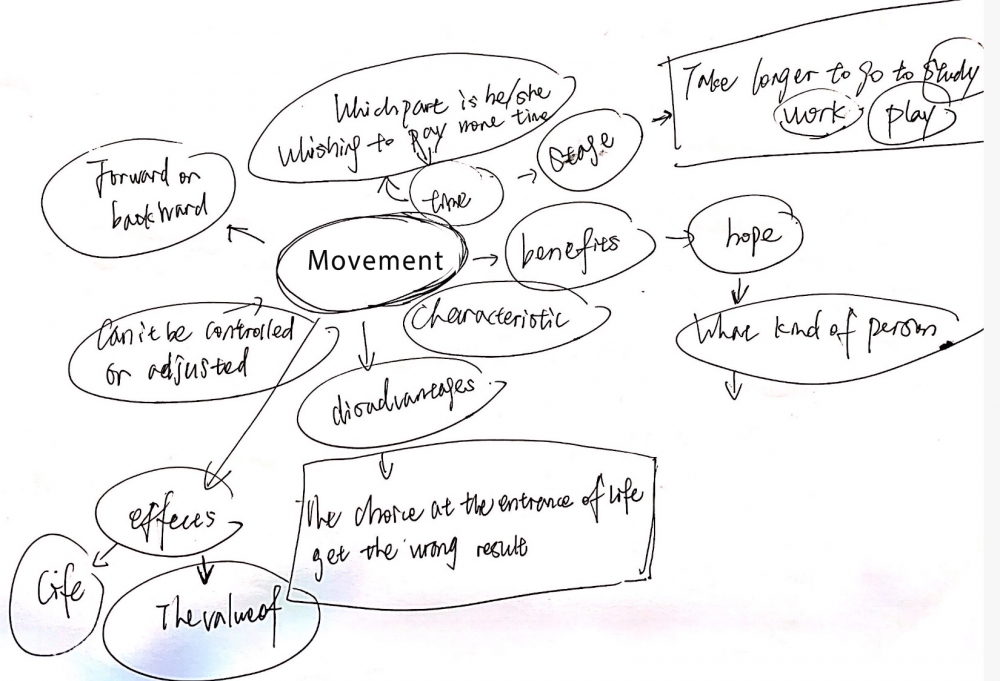 Which part is he/she
whishing to pay none time
Take longer to go to study
work play
stage
time
Forward or
backward
Movement
benefits
hope
characteristic
Can't be controlled
or adjusted
What kind of person
disadvantages
effects
The choice at the entrance of life
get the wrong result
life
The value of